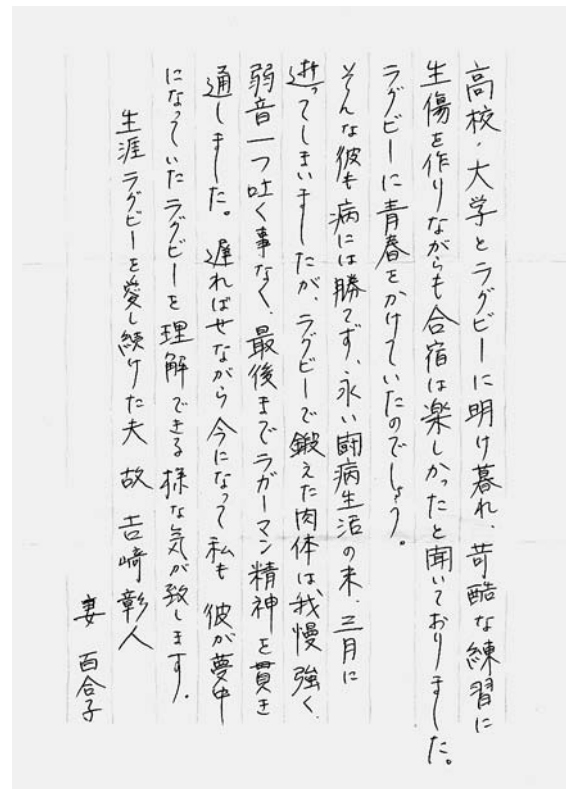 高校・大学とラグビーに明け暮れ、苛酷な練習に
生傷を作りながらも合宿は楽しかったと聞いておりました。
ラグビーに青春をかけていたのでしょう。
そんな彼も病には勝てず、永い闘病生活の末、三月に
逝ってしまいましたが、ラグビーで鍛えた肉体は我慢強く、
弱音一つ吐く事なく、最後までラガーマン精神を貫き
通しました。遅ればせながら今になって私も彼が夢中
になっていたラグビーを理解できる様な気が致します。
生涯ラグビーを愛し続けた夫 故 吉崎彰人
妻 百合子